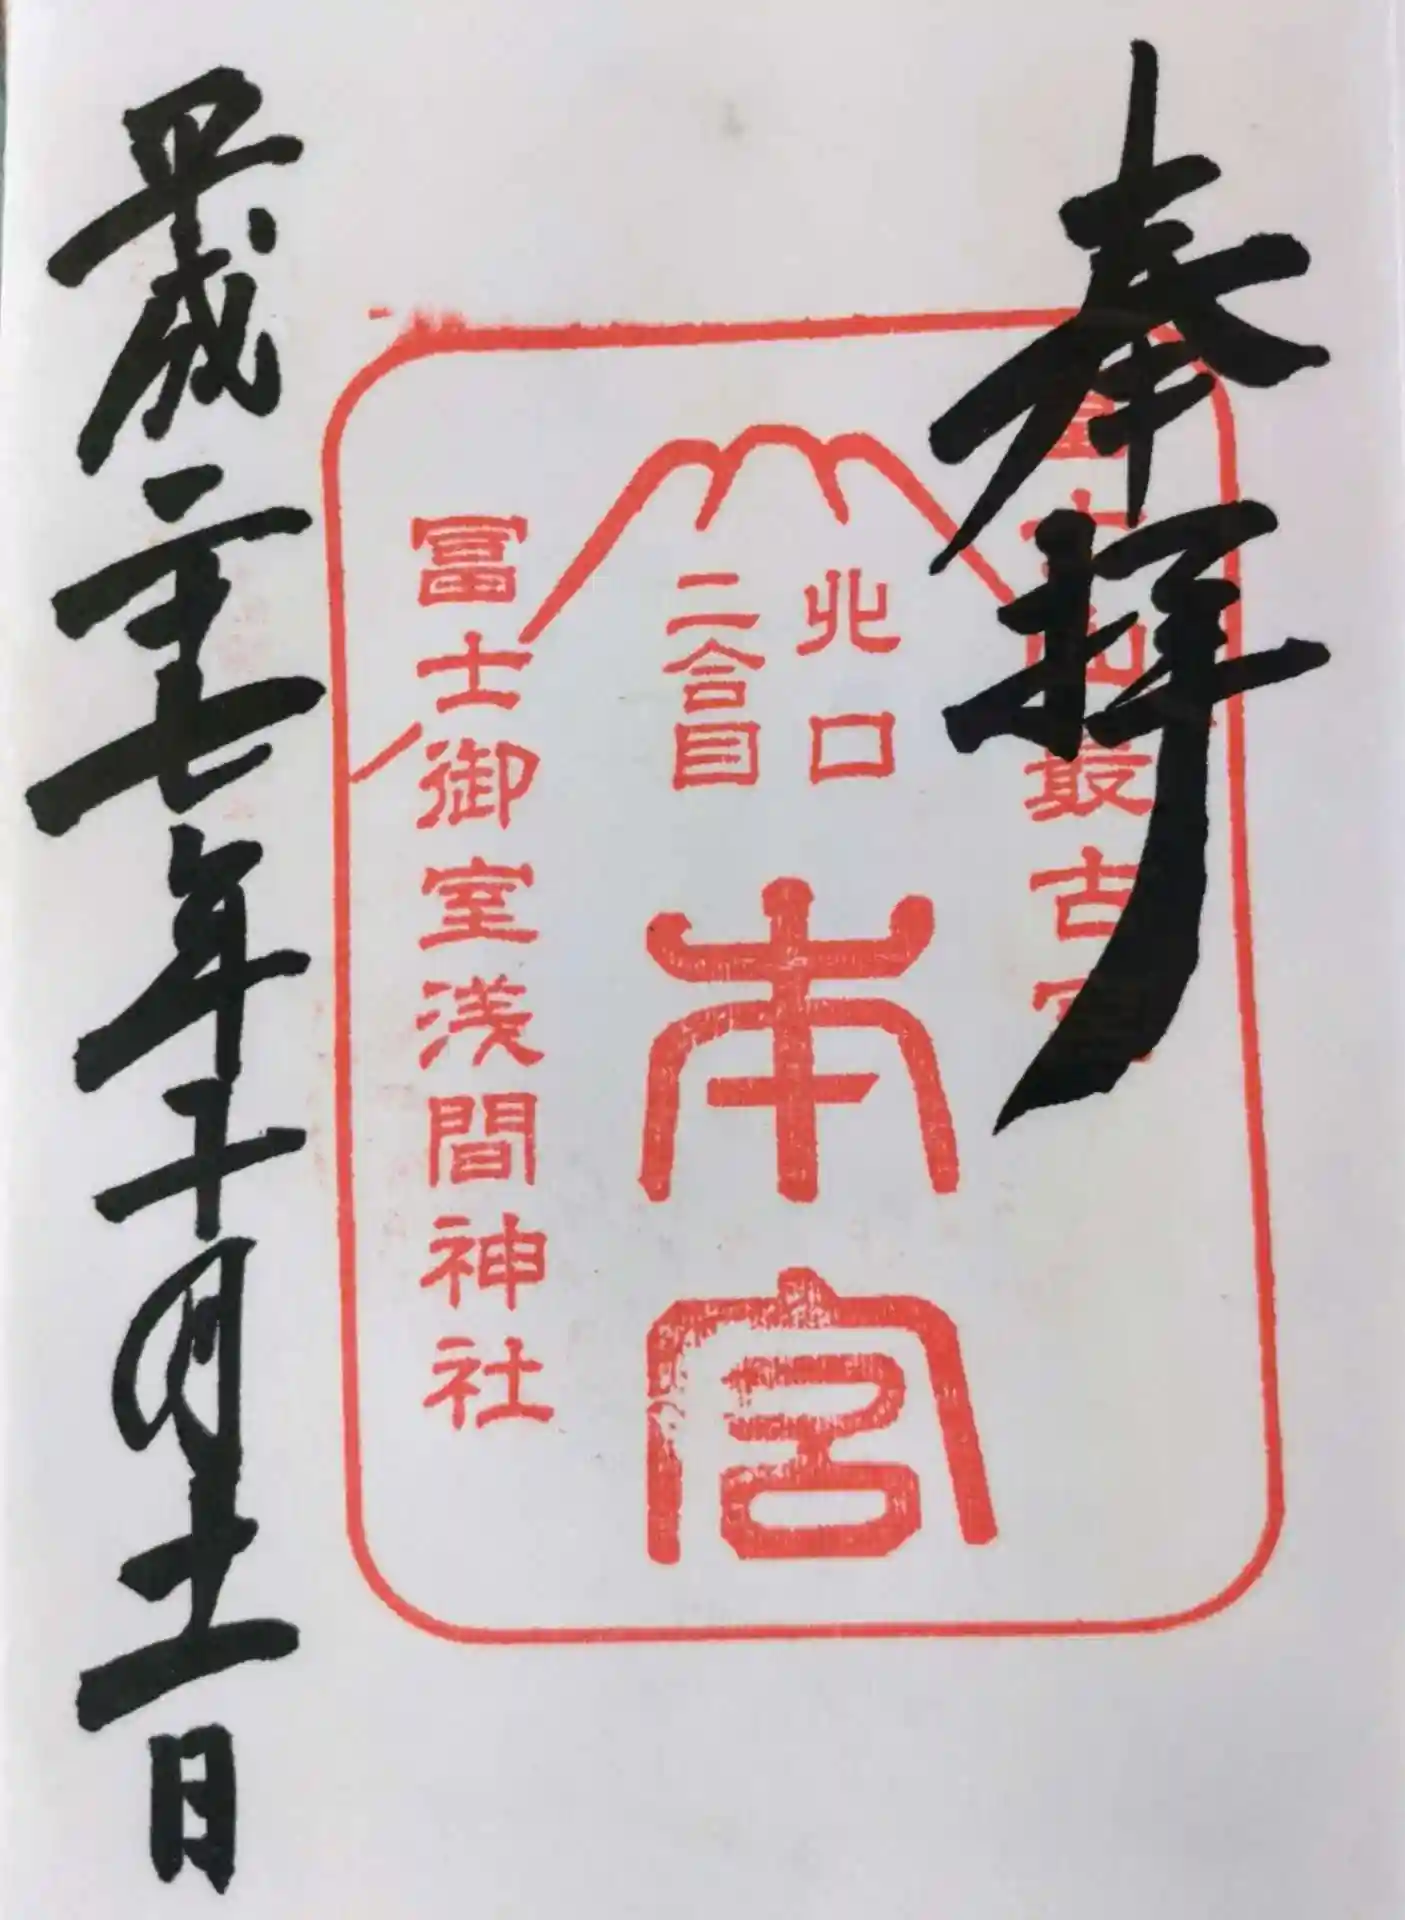 奉拝
冨士山最古宮
北口
二合目
本宮
冨士御室浅間神社
平成二十七年十月十一日